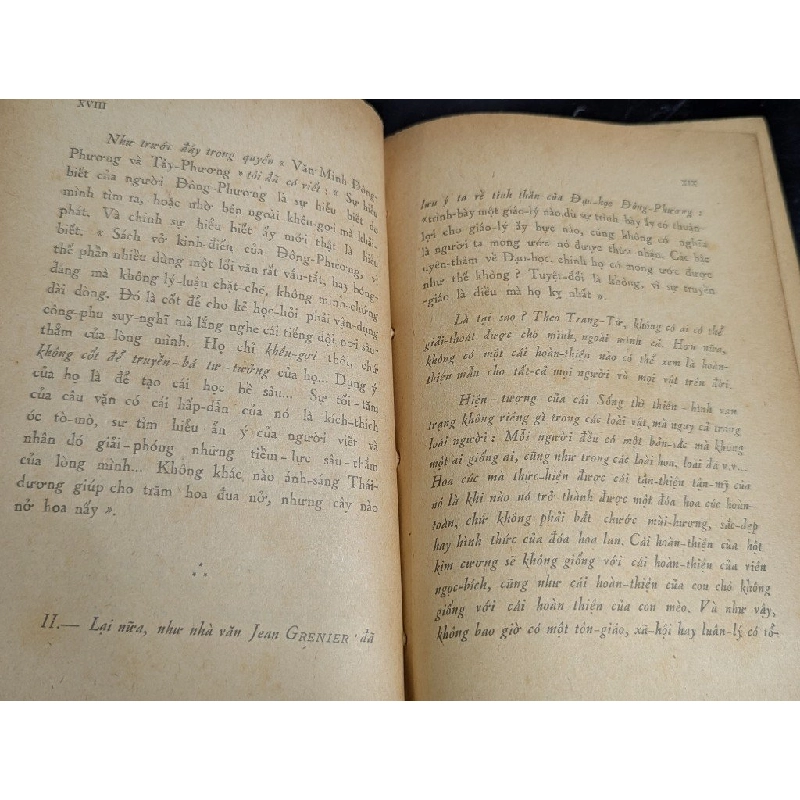 XVIII
Như trước đây trong quyển « Văn-Minh Đông-
Phương và Tây-Phương » tôi đã có viết : « Sự hiểu
biết của người Đông-Phương là sự hiểu biết do
mình tìm ra, hoặc nhờ bên ngoài khêu-gợi mà khải-
phát. Và chính sự hiểu biết ấy mới thật là hiểu
biết. « Sách vở kinh-điển của Đông-Phương, vì
thế phần nhiều dùng một lối văn rất vắn-tắt, hay bóng-
dáng mà không lý-luận chặt-chẽ, không minh-chứng
dài dòng. Đó là cốt để cho kẻ học-hỏi phải vận-dụng
công-phu suy-nghĩ mà lắng nghe cái tiếng dội nơi sâu-
thẳm của lòng mình. Họ chỉ khêu-gợi thôi, chứ
không cốt để truyền-bá tư-tưởng của họ... Dụng ý
của họ là để tạo cái học bề sâu... Sự tối-tăm
của câu văn có cái hấp-dẫn của nó là kích-thích
óc tò-mò, sự tìm hiểu ẩn ý của người viết và
nhân đó giải-phóng những tiềm-lực sâu-thẳm
của lòng mình... Không khác nào ánh-sáng Thái-
dương giúp cho trăm hoa đua nở, nhưng cây nào
nở hoa nấy ».
II.— Lại nữa, như nhà văn Jean GRENIER đã
XIX
lưu ý ta về tinh thần của Đạo-học Đông-Phương :
«trình-bày một giáo-lý nào dù sự trình bày ấy có thuận-
lợi cho giáo-lý ấy bực nào, cũng không có nghĩa
là người ta mong ước nó được thừa nhận. Các bậc
uyên-thâm về Đạo-học, chính họ có mong ước được
như thế không ? Tuyệt-đối là không, vì sự truyền
giáo là điều mà họ kỵ nhất ».
Là tại sao ? Theo Trang-Tử, không có ai có thể
giải-thoát được cho mình, ngoài mình cả. Hơn nữa,
không có một cái hoàn-thiện nào có thể xem là hoàn-
thiện mẫu cho tất-cả mọi người và mọi vật trên đời.
Hiện-tượng của cái Sống thì thiên-hình vạn
trạng không riêng gì trong các loài vật, mà ngay cả trong
loài người : Mỗi người đều có một bản-sắc mà không
một ai giống ai, cũng như trong các loài hoa, loài đá v.v...
Hoa cúc mà thực-hiện được cái tận-thiện tận-mỹ của
nó là khi nào nó trở thành được một đóa hoa cúc hoàn-
toàn, chứ không phải bắt chước mùi-hương, sắc-đẹp
hay hình thức của đóa hoa lan. Cái hoàn-thiện của hột
kim cương sẽ không giống với cái hoàn-thiện của viên
ngọc-bích, cũng như cái hoàn-thiện của con chó không
giống với cái hoàn thiện của con mèo. Và như vậy,
không bao giờ có một tôn-giáo, xã-hội hay luân-lý có tổ-